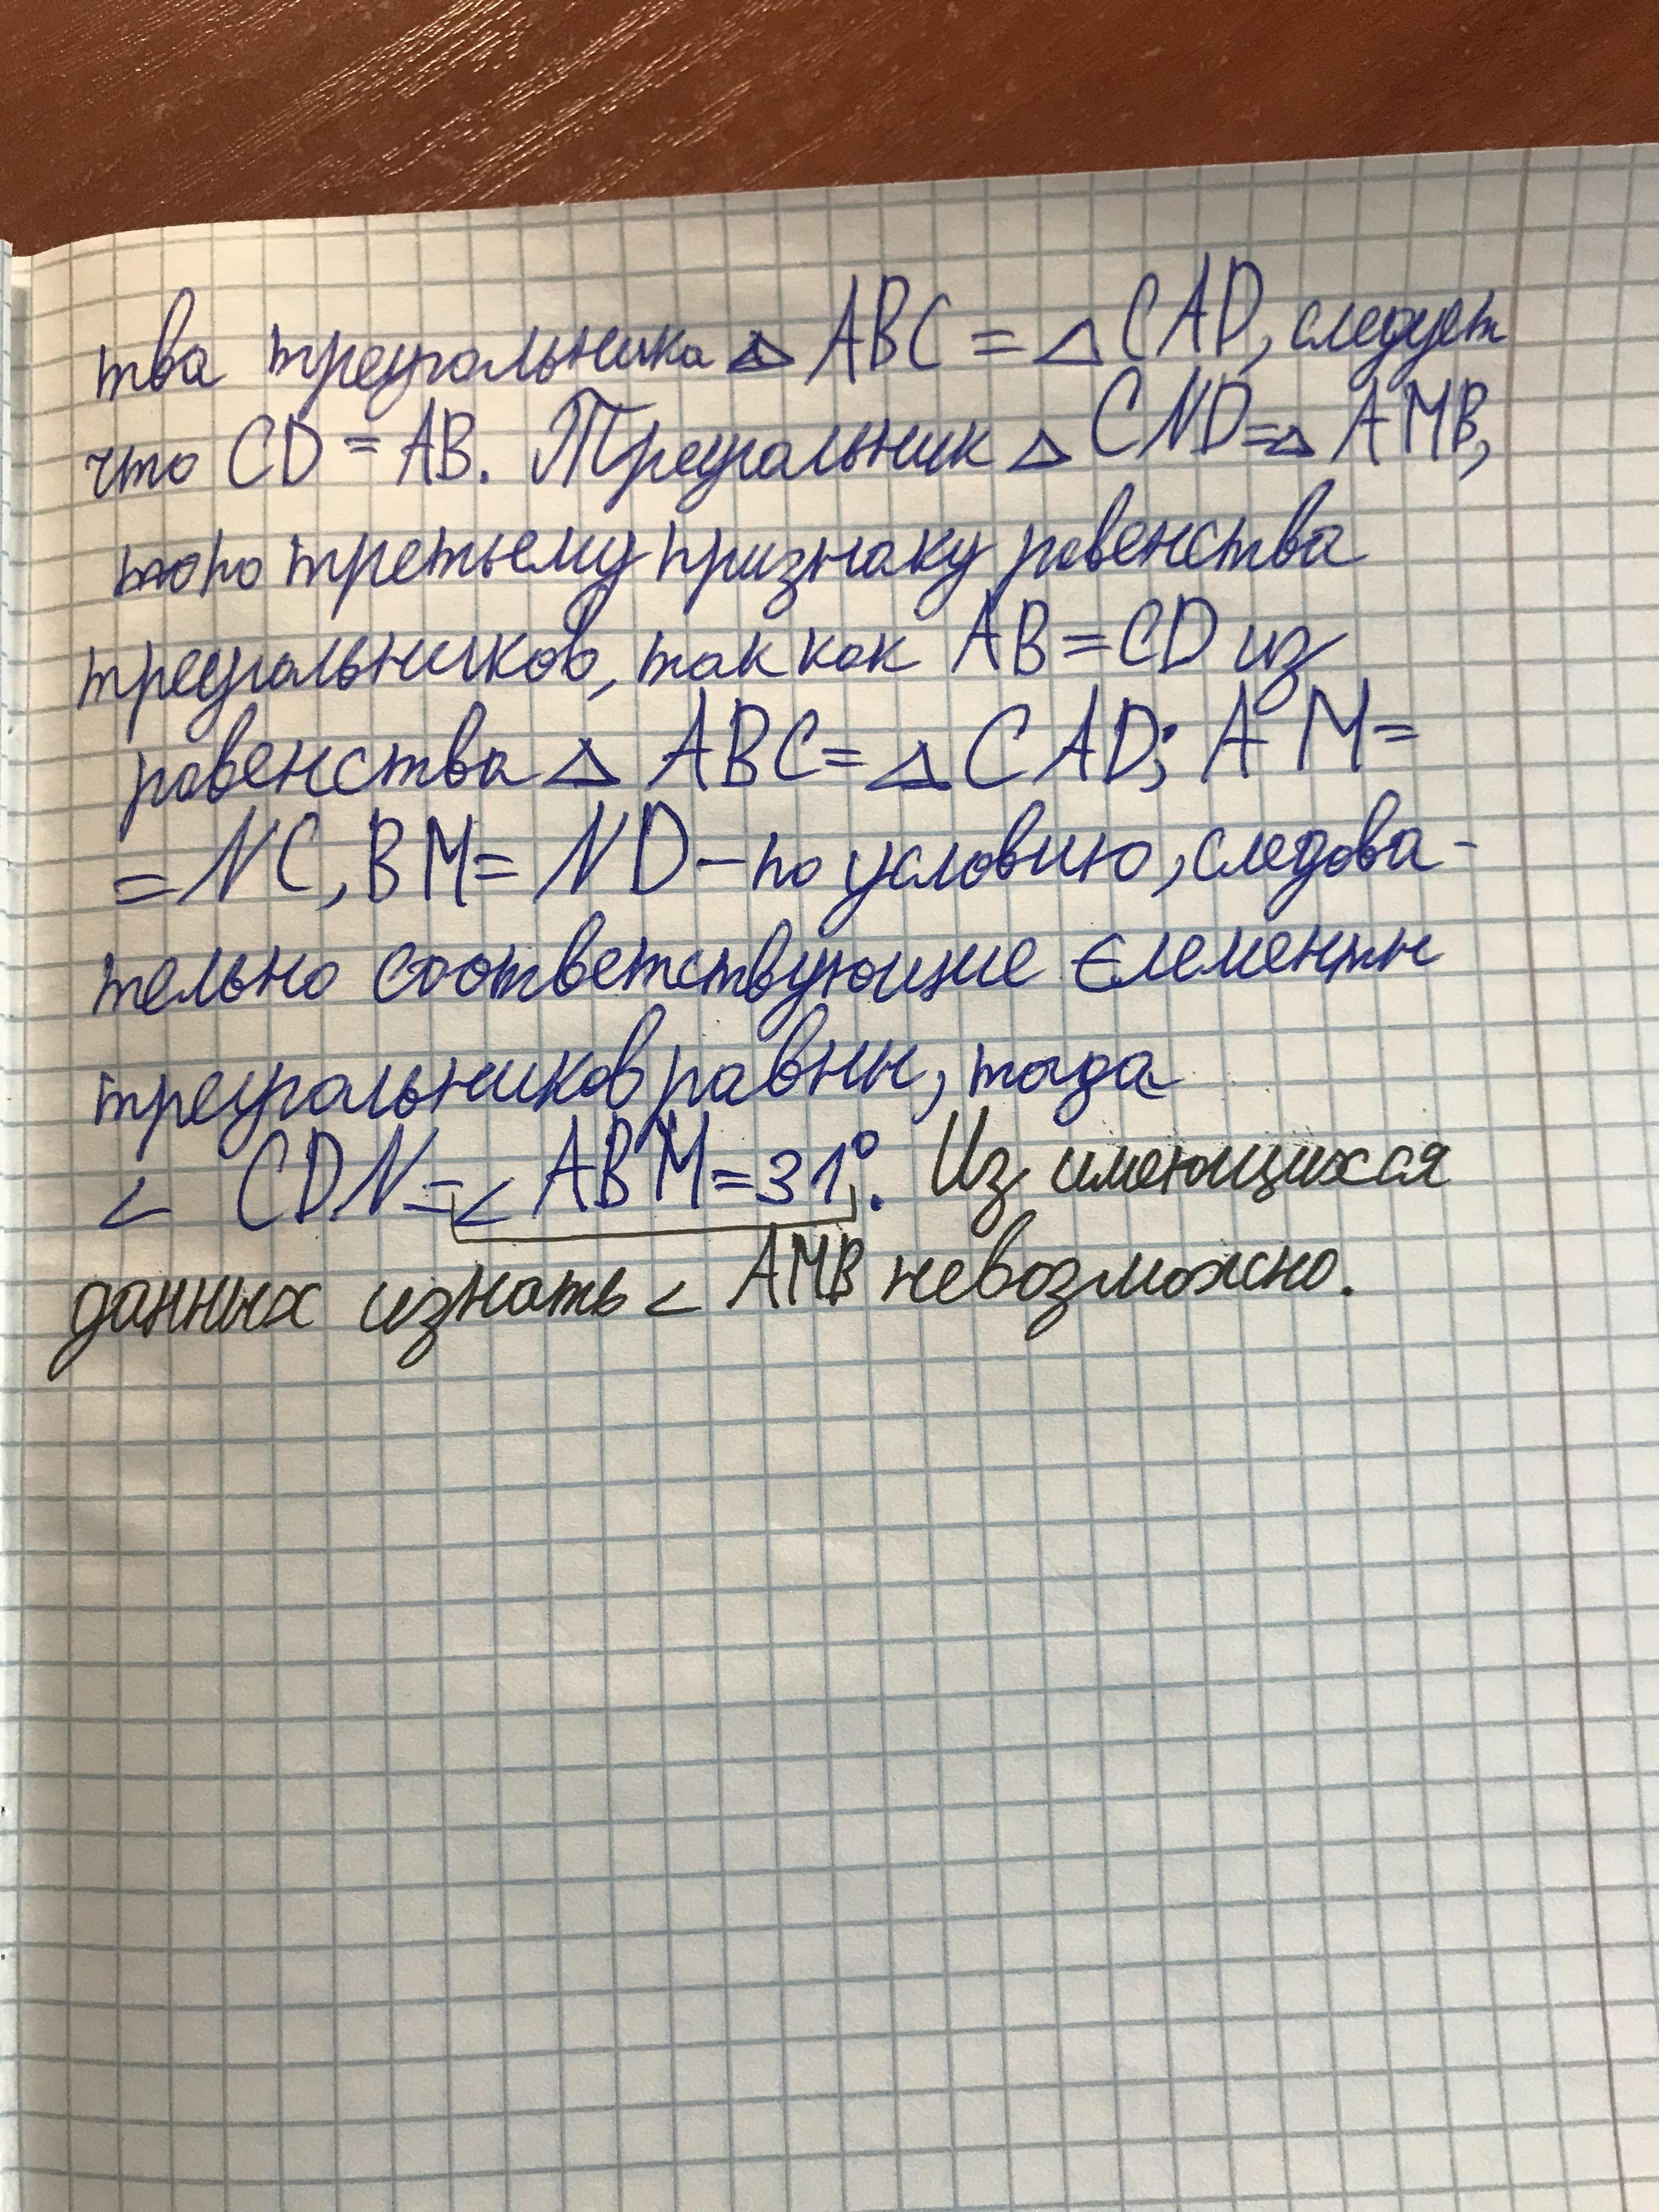 тва треугольника △ ABC = △ CAD, следует
что CD = AB. Треугольник △ CND = △ AMB,
по третьему признаку равенства
треугольников, так как AB = CD из
равенства △ ABC = △ CAD; AM =
= NC, BM = ND – по условию, следова -
тельно соответствующие єлементн
треугольников равнн, тогда
< CDN = < ABM = 31°. Из имеющихся
данных изнать < AMB невозможно.